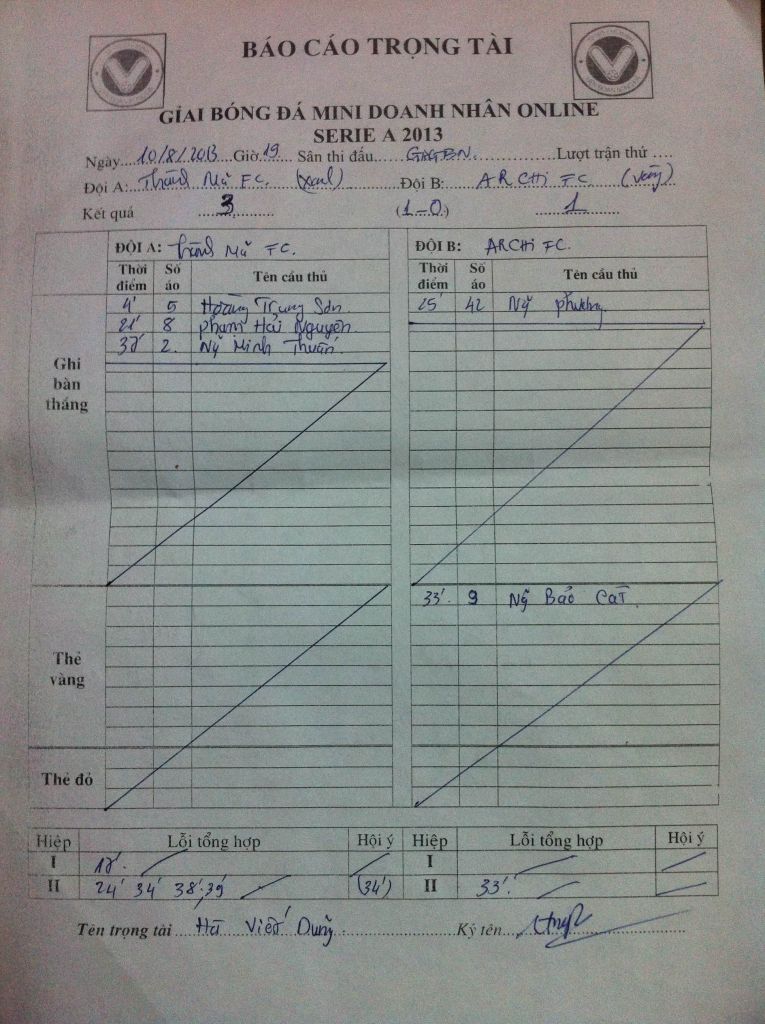 BÁO CÁO TRỌNG TÀI
GIẢI BÓNG ĐÁ MINI DOANH NHÂN ONLINE
SERIE A 2013
Ngày....10/8/2013 Giờ.19.... Sân thi đấu...............Lượt trận thứ ....
Đội A: FC. (xanh) Đội B: ARCHI FC. (vàng)
Kết quả 3 (1-0) 1
ĐỘI A: FC. ĐỘI B: ARCHI FC.
Thời điểm Số áo Tên cầu thủ Thời điểm Số áo Tên cầu thủ
Ghi bàn thắng
4' 5 Hoàng Trung Sơn. 25' 42 Ng̃ Phương
21' 8 Phạm Hải Nguyên.
2. Ng̃ Minh Thuấn.
Thẻ vàng
33'. 9 Ng̃ Bảo Cát.
Thẻ đỏ
Hiệp Lỗi tổng hợp Hội ý Hiệp Lỗi tổng hợp Hội ý
I I
II 24' 34' 38' 39' (34') II 33'.
Tên trọng tài Hà Viết Dũng Ký tên